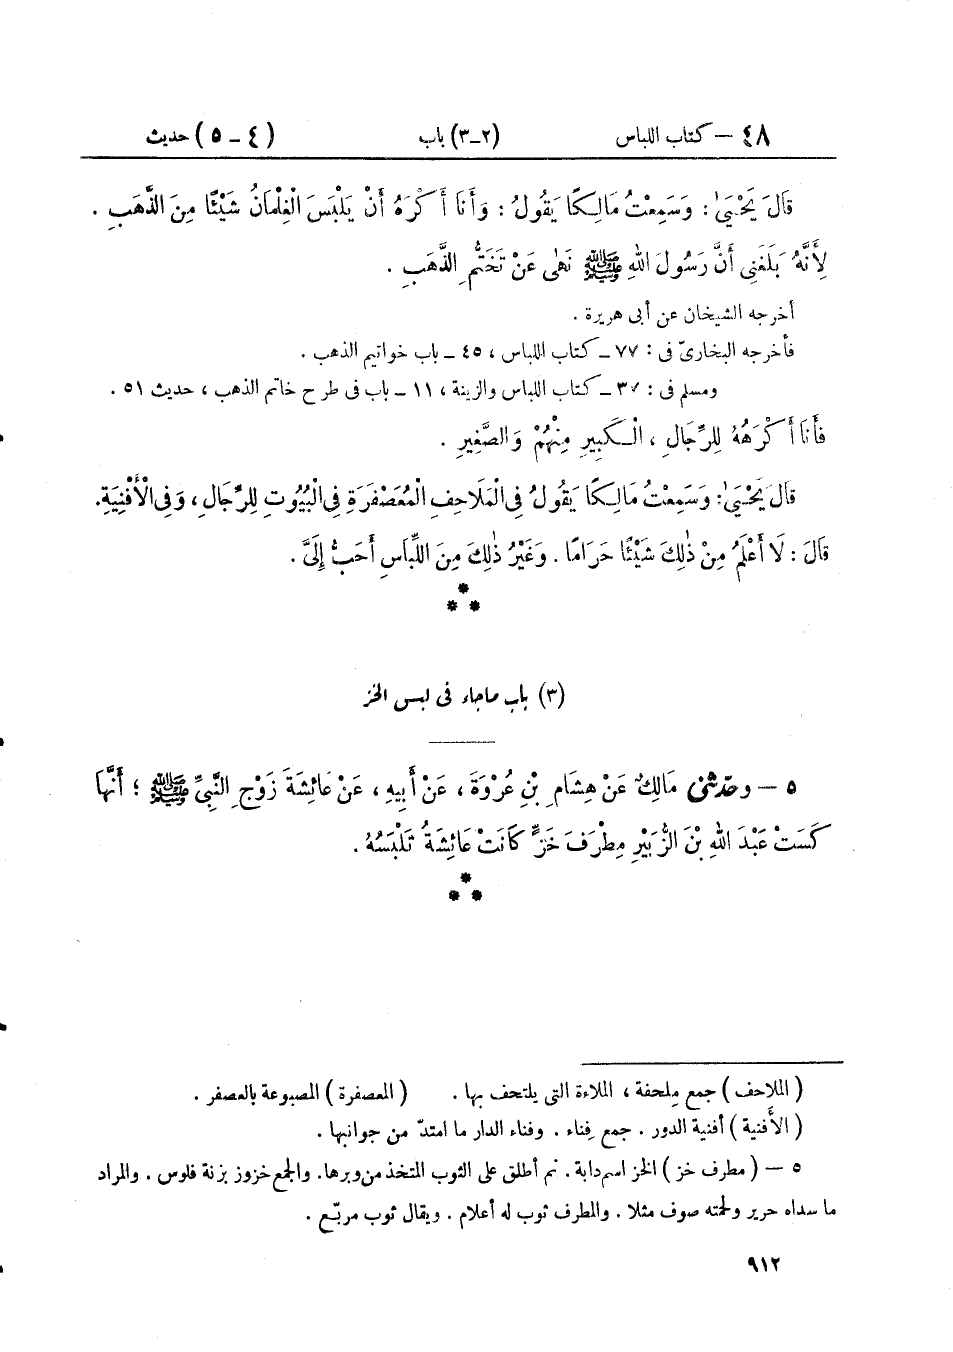 ٤٨ – كتاب اللباس (٢-٣) باب (٤ – ٥) حديث
قَالَ يَحْيَىٰ: وَسَمِعْتُ مَالِكًا يَقُولُ: وَأَنَا أَكْرَهُ أَنْ يَلْبَسَ الْغِلْمَانُ شَيْئًا مِنَ الذَّهَبِ.
لِأَنَّهُ بَلَغَنِى أَنَّ رَسُولَ اللهِ ﷺ نَهَى عَنْ تَخَتُّمِ الذَّهَبِ.
أخرجه الشيخان عن أبى هريرة.
فأخرجه البخارىّ فى: ٧٧ – كتاب اللباس، ٤٥ – باب خواتيم الذهب.
ومسلم فى: ٣٧ – كتاب اللباس والزينة، ١١ – باب فى طرح خاتم الذهب، حديث ٥١.
فَأَنَا أَكْرَهُهُ لِلرِّجَالِ، الْكَبِيرِ مِنْهُمْ وَالصَّغِيرِ.
قَالَ يَحْيَىٰ: وَسَمِعْتُ مَالِكًا يَقُولُ فِى الْمَلَاحِفِ الْمُعَصْفَرَةِ فِى الْبُيُوتِ لِلرِّجَالِ، وَفِى الْأَفْنِيَةِ.
قَالَ: لَا أَعْلَمُ مِنْ ذٰلِكَ شَيْئًا حَرَامًا. وَغَيْرُ ذٰلِكَ مِنَ اللِّبَاسِ أَحَبُّ إِلَىَّ.
(٣) باب ماجاء فى لبس الخز
٥ – وحدّثنى مَالِكٌ عَنْ هِشَامِ بْنِ عُرْوَةَ، عَنْ أَبِيهِ، عَنْ عَائِشَةَ زَوْجِ النَّبِىِّ ﷺ؛ أَنَّهَا
كَسَتْ عَبْدَ اللهِ بْنَ الزُّبَيْرِ مِطْرَفَ خَزٍّ كَانَتْ عَائِشَةُ تَلْبَسُهُ.
(الملاحف) جمع مِلحفة، الملاءة التى يلتحف بها. (المعصفرة) المصبوعة بالعصفر.
(الأَفنية) أفنية الدور. جمع فِناء. وفناء الدار ما امتدّ من جوانبها.
٥ – (مطرف خز) الخز اسم دابة. ثم أطلق على الثوب المتخذ من وبرها. والجمع خزوز بزنة فلوس. والمراد
ما سداه حرير ولحمته صوف مثلا. والمطرف ثوب له أعلام. ويقال ثوب مربّع.
٩١٢